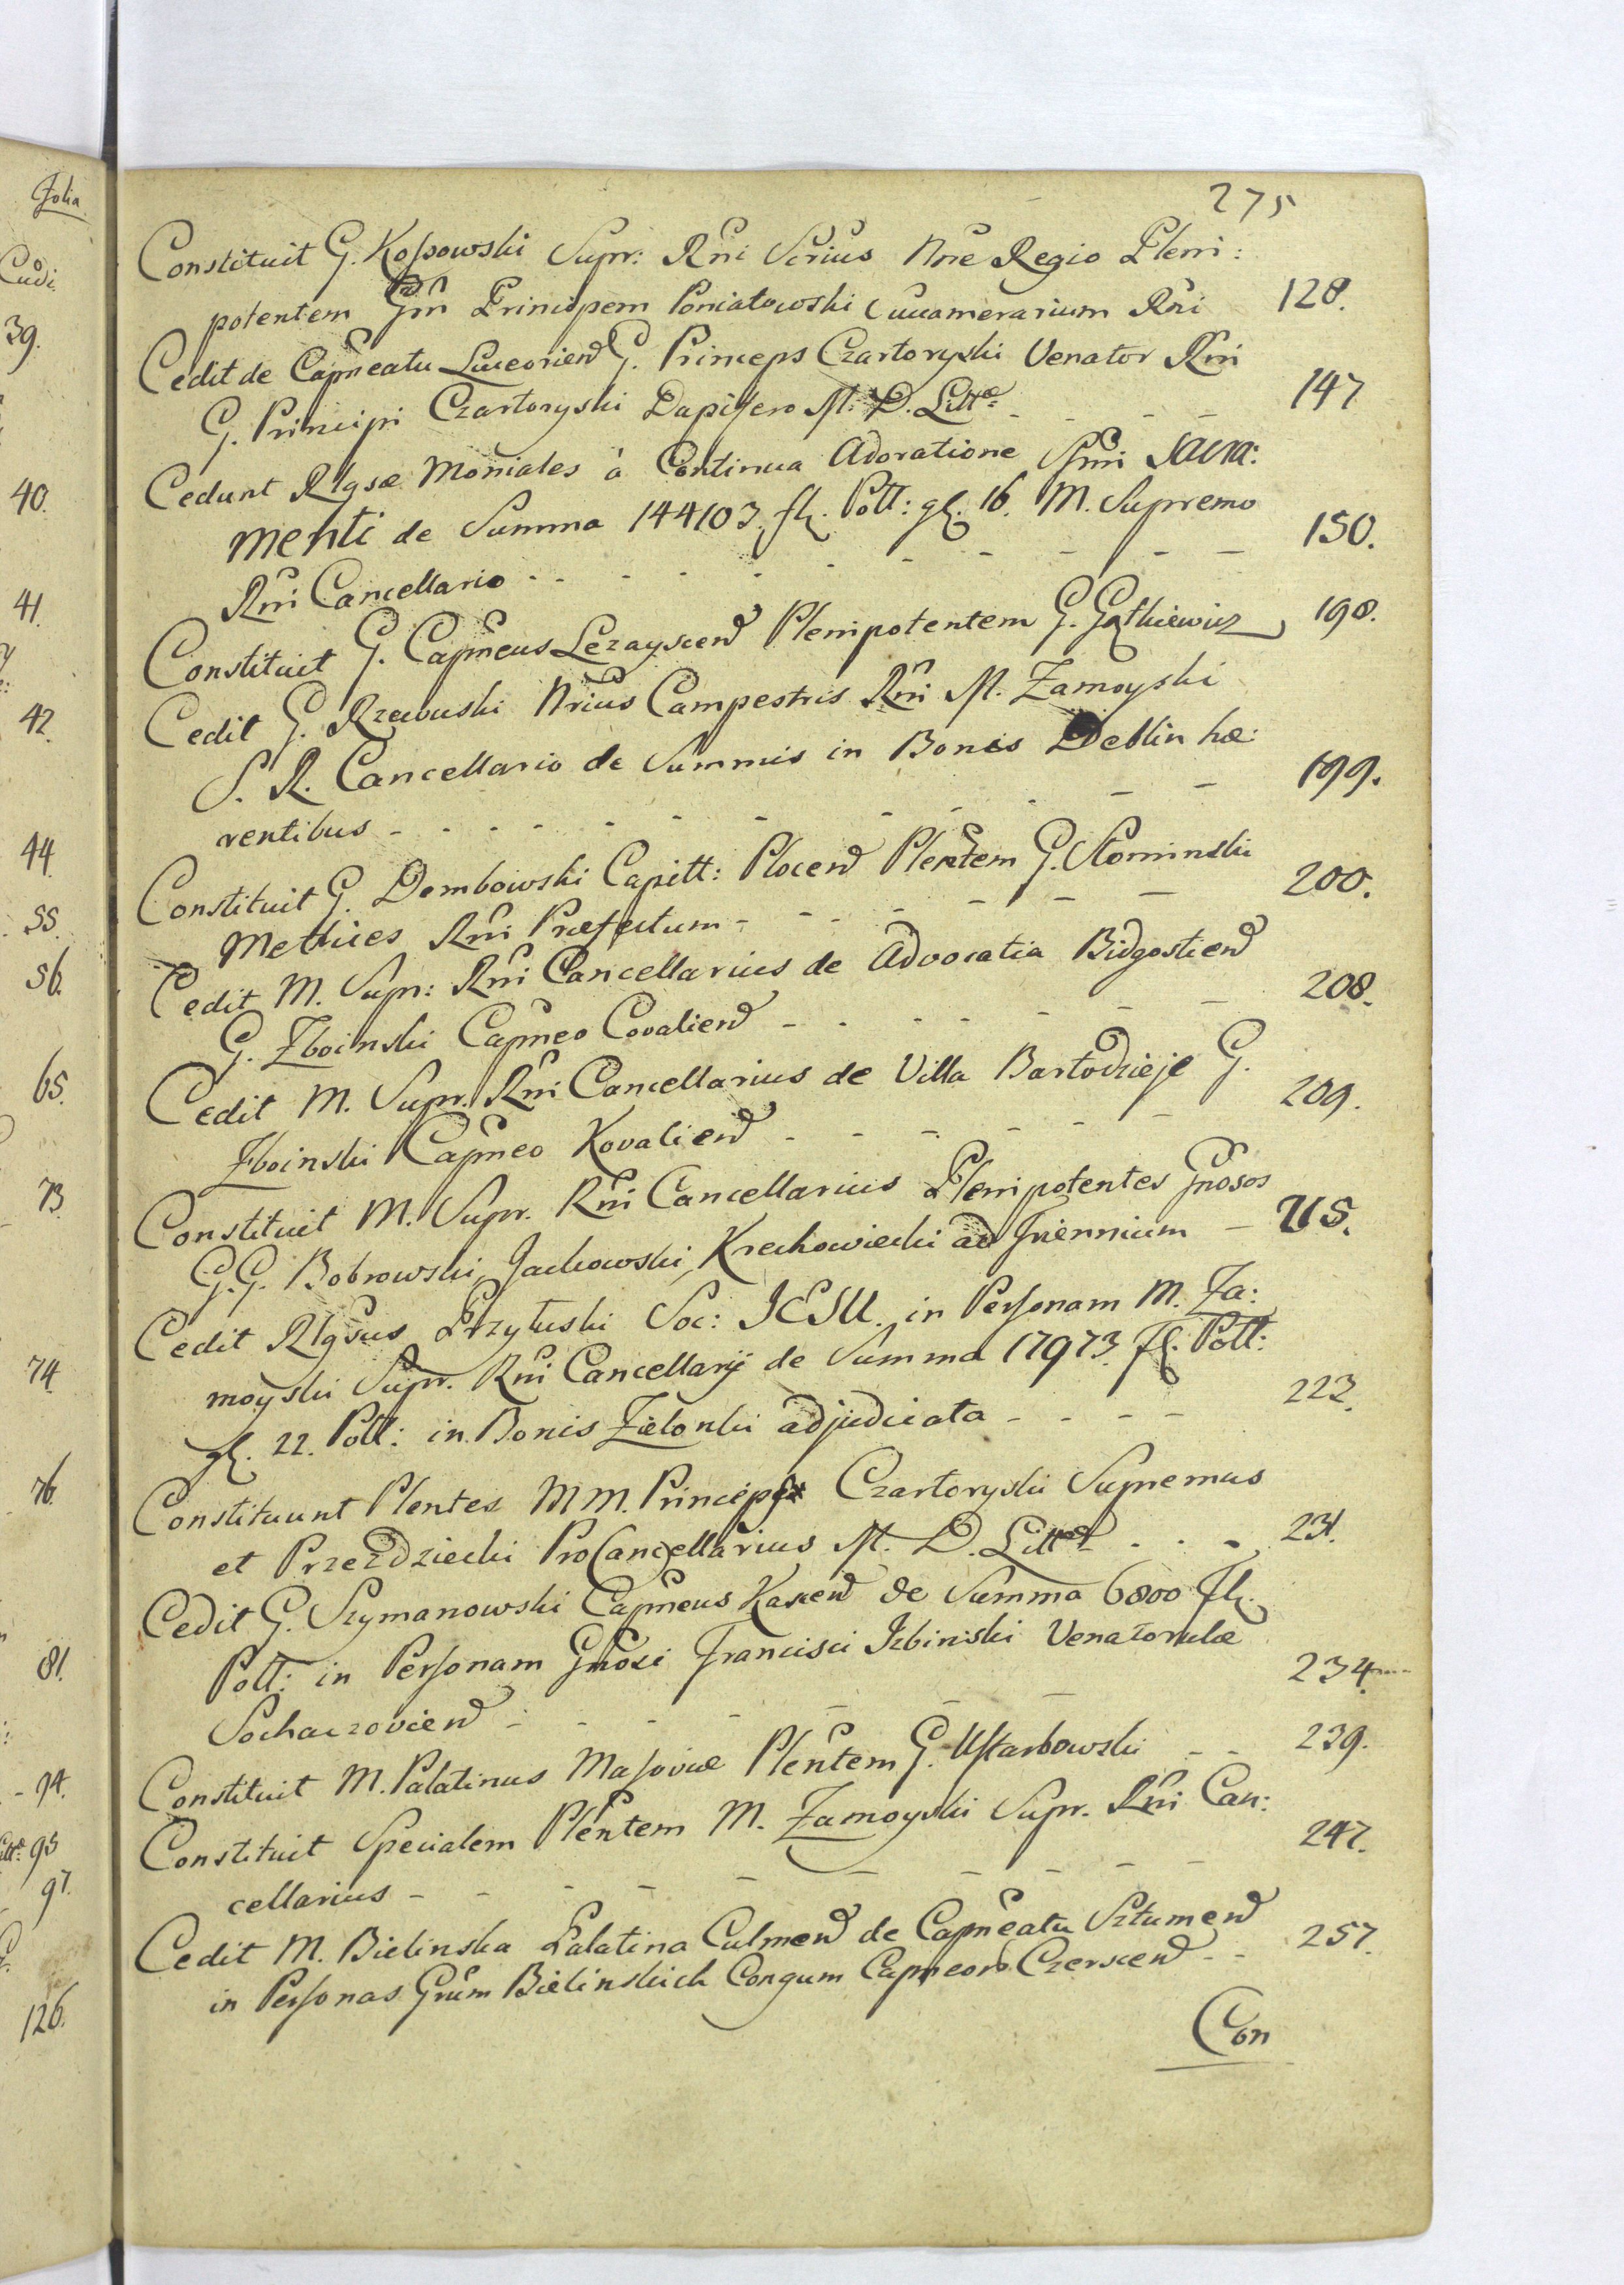 Folia
Cudi.
39.
40.
41.
42.
44.
55.
56.
65.
73.
74.
76.
81.
94.
95
97.
126.
275
Constituit G. Kossowski Supr: Rñi Scrius Nñe Regio Pleni:
potentem Gm̃ Principem Poniatowski Succamerarium Rñi 128.
Cedit de Capñeatu Luceorien G. Princeps Czartoryski Venator Rñi
G. Principi Czartoryski Dapifero M. D. Littæ - - - 147
Cedunt Rlgsæ Moniales à Continua Adoratione Ssmi Sacra:
menti de Summa 144103. fl. Poll: gl. 16. M. Supremo
Rñi Cancellario - - - - - - - - - 150.
Constituit G. Capñeus Lezayscen Plenipotentem G. 198.
Cedit G. Rzewuski Nrius Campestris Rñi M. Zamoyski
S. R. Cancellario de Summis in Bonis Deblin hæ:
rentibus - - - - - - - - - 199.
Constituit G. Dembowski Capitt: Plocen Plentem G. Slominski
Methices Rñi Præfectum - - - - - - 200.
Cedit M. Supr: Rñi Cancellarius de Advocatia Bidgostien
G. Zboinski Capñeo Covalien - - - - - - 208.
Cedit M. Supr. Rñi Cancellarius de Villa Bartodzieje G.
Zboinski Capñeo Kovalien - - - - - - 209.
Constituit M. Supr. Rñi Cancellarius Plenipotentes Gñosos
G.G. Bobrowski, Jackowski, Krechowiecki ad Triennium - 215.
Cedit Rlgsus Przyłuski Soc: JESU. in Personam M. Za:
moyski Supr. Rñi Cancellarij de Summa 17973. fl. Poll:
gl. 22. Poll: in Bonis Zielonki adjudicata - - - - 223.
Constituunt Plentes M M. Princeps Czartoryski Supremus
et Przezdziecki ProCancellarius M. D. Litt - - - 231.
Cedit G. Szymanowski Capñeus Kascen de Summa 6800 fl.
Poll: in Personam Gñosi Francisci Izbinski Venatoridæ
Sochaczovien - - - - - - - 234.
Constituit M. Palatinus Masoviæ Plentem G. Ustarbowski - - 239.
Constituit Specialem Plentem M. Zamoyski Supr. Rñi Can:
cellarius - - - - - - - - - 247.
Cedit M. Bielinska Palatina Culmen de Capñeatu Sztumen
in Personas Grum Bielinskich Congum Capneor Czerscen - - 257.
Con